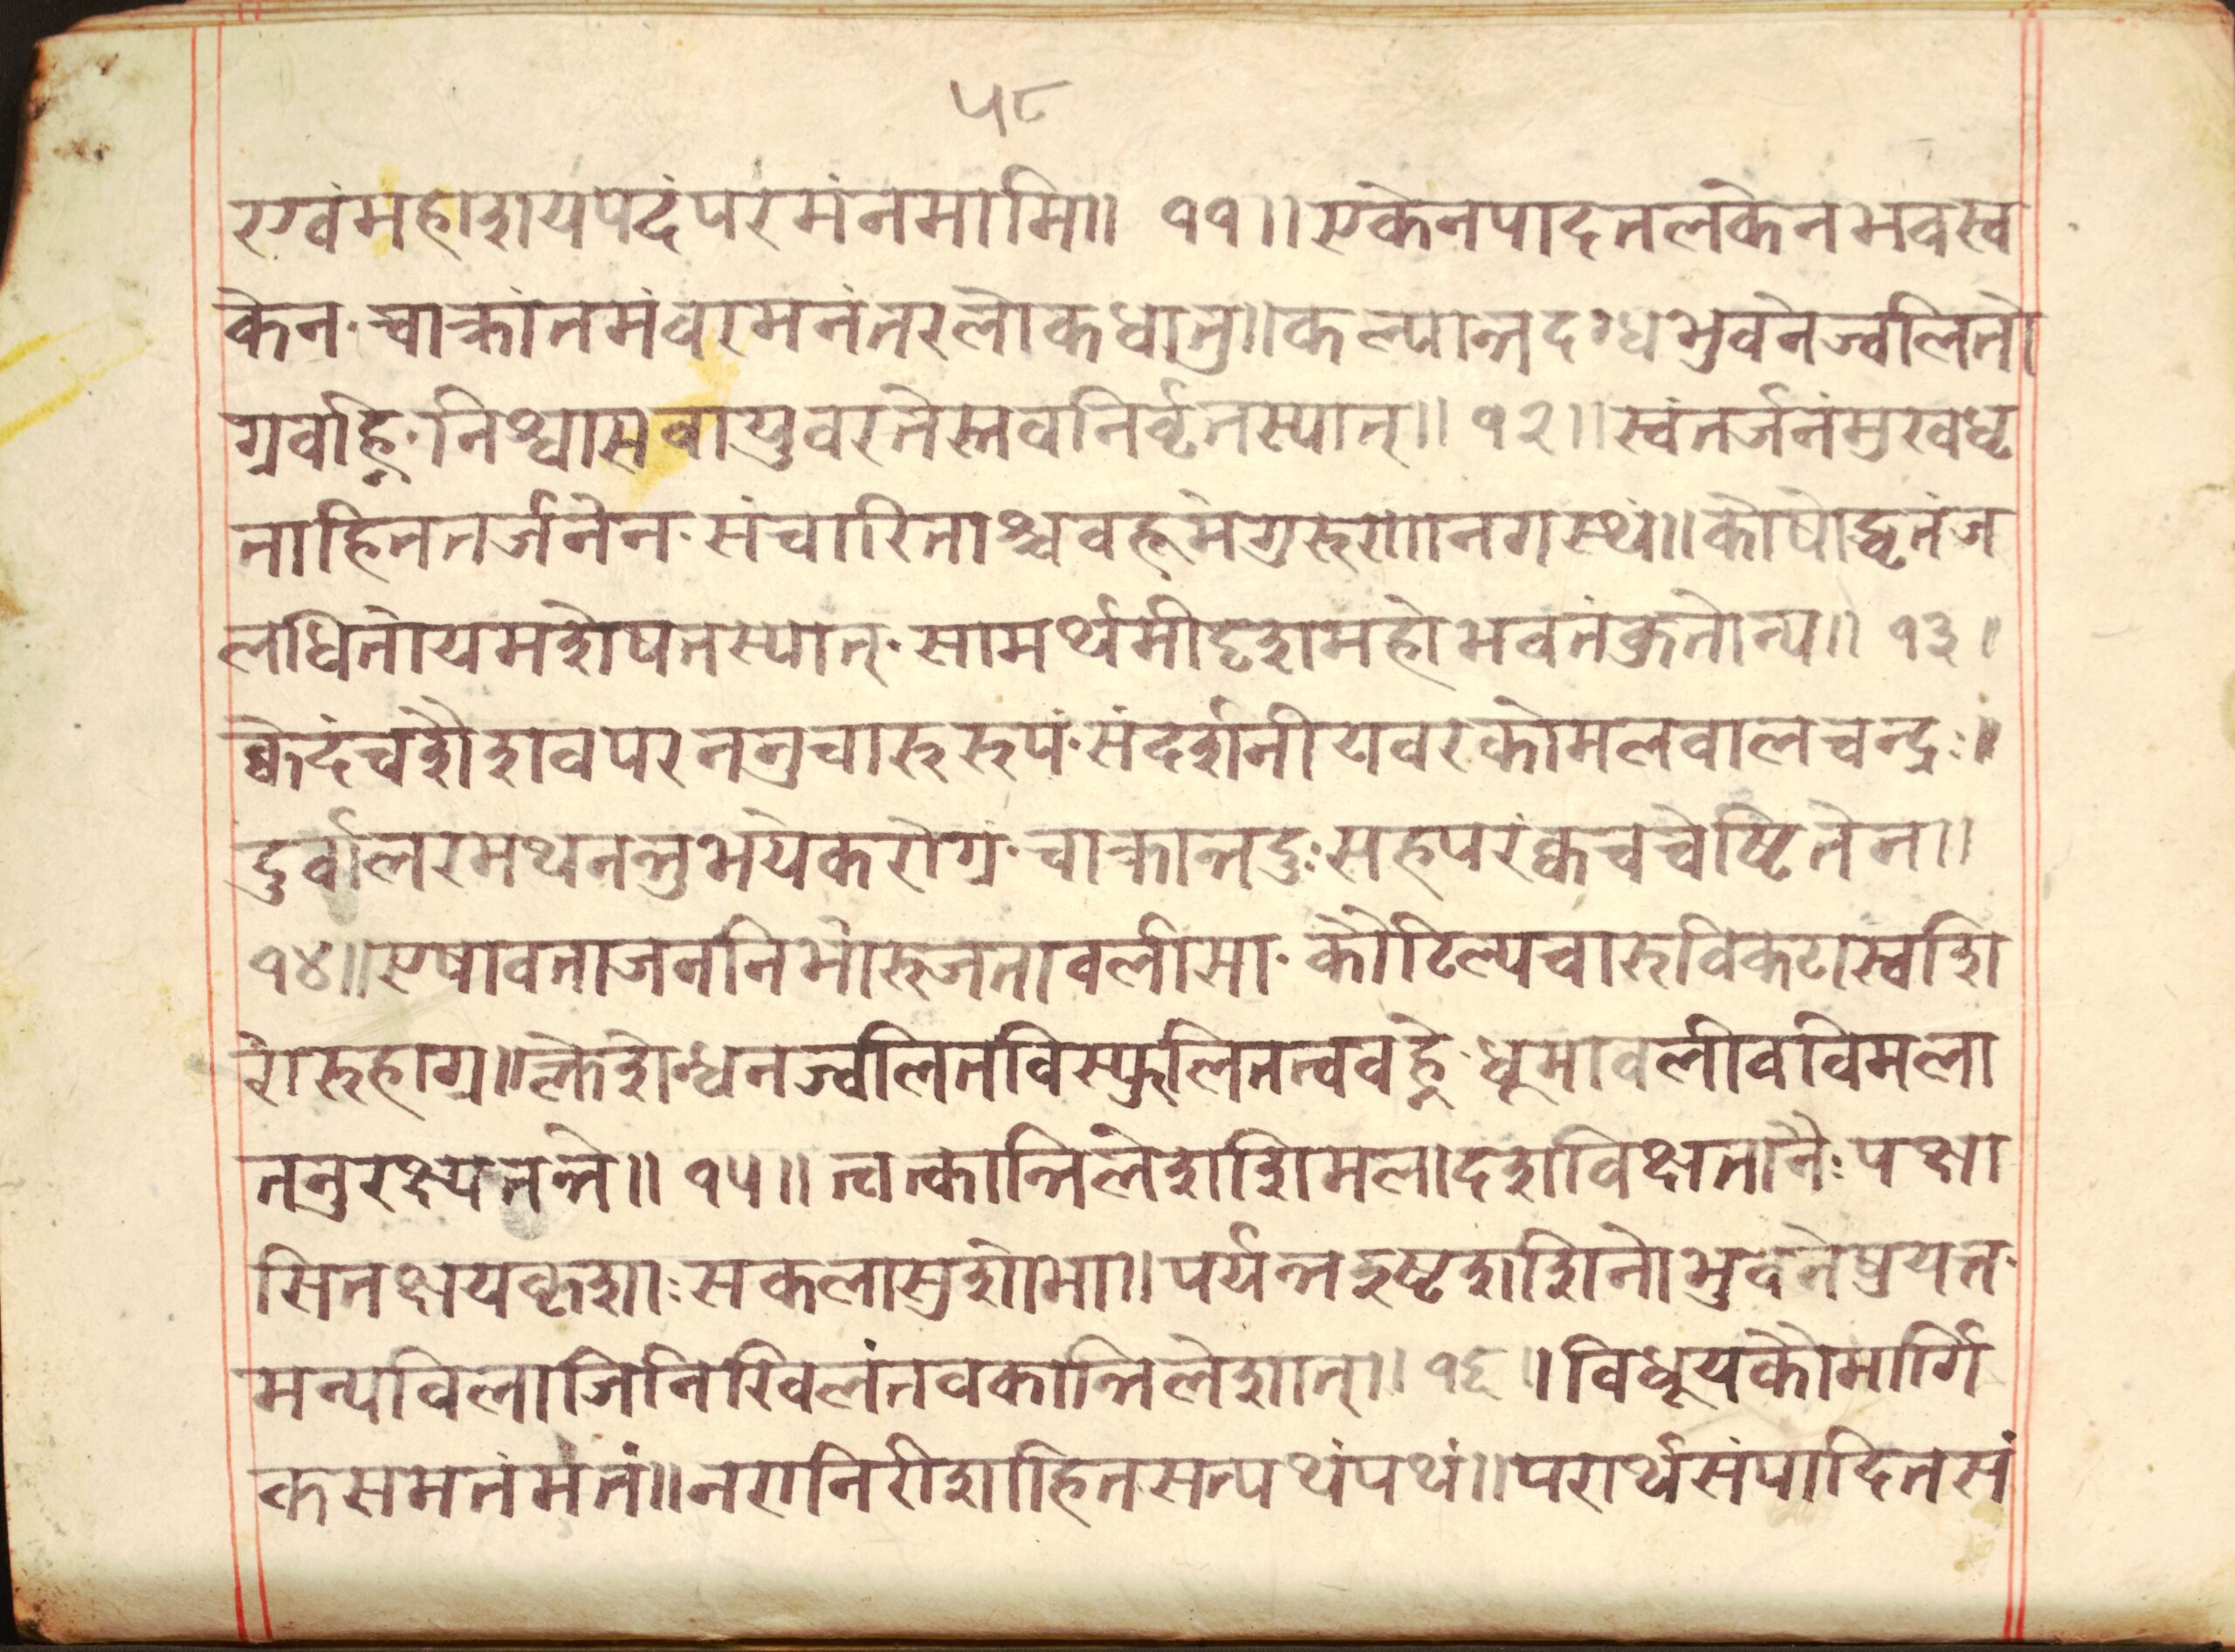 ५८
रग्वंमहाशयपदंपरमंनमामि॥ ११॥एकेनपादतलकेनभवस्व
केन·चाक्रांतमंवरमनंतरलोकधातु॥कल्पान्तदग्धभुवनेज्वलितो
ग्रवह्नि·निश्वासवायुवरतेस्तवनिर्वृतस्यात्॥१२॥स्वंतर्जनंमुखधृ
ताहिततर्जनेन·संचारिताश्चवहूमेग्रुरूगाानगस्थं॥कोषोद्धृतंज
लधितोयमशेषतस्यात्·सामर्थमीदृशमहोभवतंकुतोन्य॥१३।
क्वेदंचशैशवपरननुचारुरुपं·संदर्शनीयवरकोमलवालचन्द्रः॥
दुर्वालरमथनन्तुभयेकरोग्रं·चाक्रान्तदुःसहपरंक्वचचेष्टितेन॥
१४॥एषावताजननिभोरुजतावलीसा·कौटिल्यचारुविकटास्वशि
रोरुहाग्र॥क्लेशेन्धनज्वलितविस्फुलितत्ववह्ने·धूमावलीवविमला
ननुरक्ष्यतन्ते॥१५॥त्वत्कान्तिलेशशिमलादशविक्षतानैःपक्षा
सितक्षयकृशाःसकलासुशोभा॥पर्यन्तदुष्टशशिनोभुवनेषुयत·
मन्यविलाजिनिखिलंतवकान्तिलेशात्॥१६।।विधूयकौमार्गि
कसमतंमतं॥नरानिरीशाहितसत्पथंपथं॥परार्थसंपादितसं